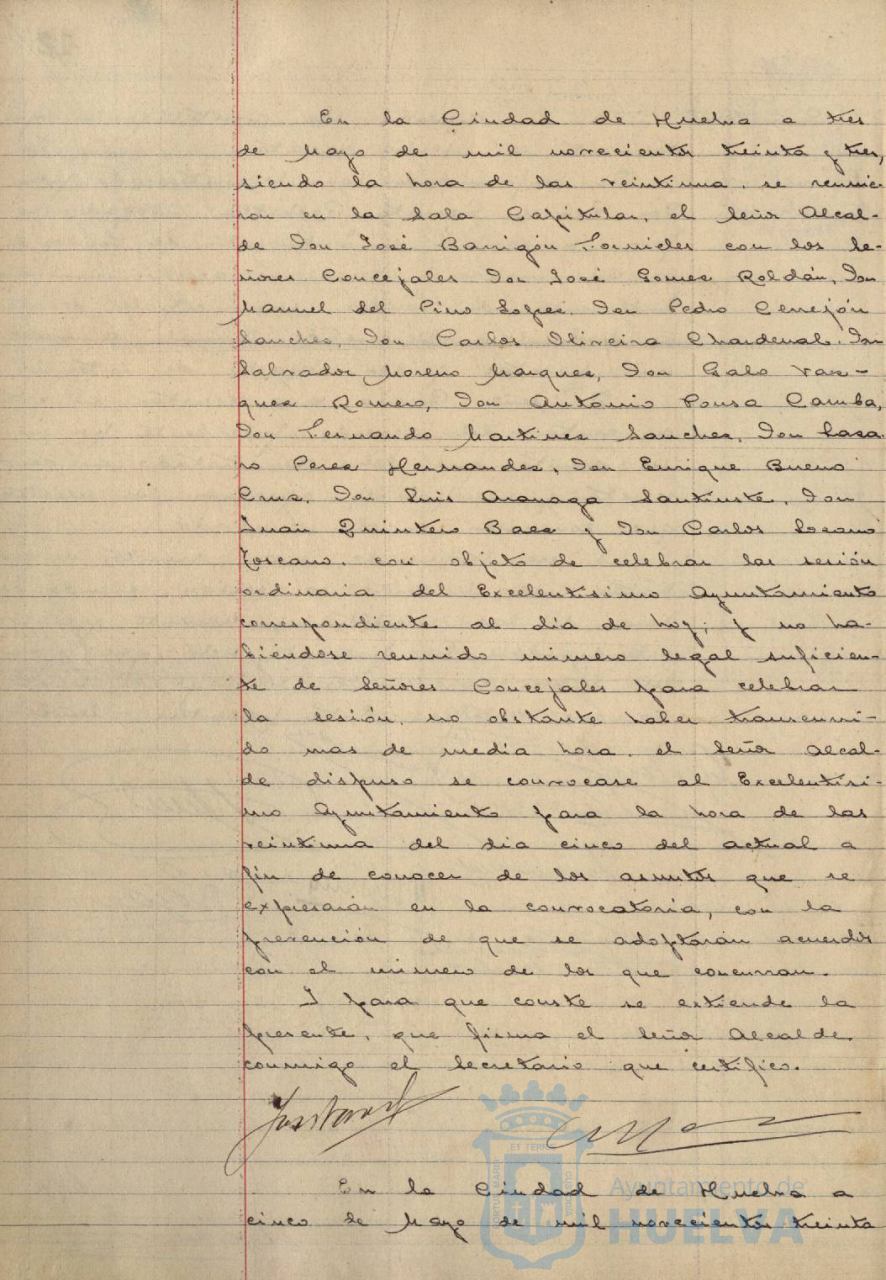 En la Ciudad de Huelva a tres
de Mayo de mil novecientos treinta y tres,
siendo la hora de las veintiuna, se reunie-
ron en la Sala Capitular, el Señor Alcal-
de Don José Barrigón Fornieles con los Se-
ñores Concejales Don José Gomez Roldán, Don
Manuel del Pino Lopez, Don Pedro Cerrejón
Sanchez, Don Carlos Oliveira Chardenal, Don
Salvador Moreno Marquez, Don Galo Vaz-
quez Romero, Don Antonio Pousa Camba,
Don Fernando Martinez Sanchez, Don Laza-
ro Perez Hernandez, Don Enrique Bueno
Cruz, Don Luis Aranaga Santiuste, Don
Juan Quintero Baez y Don Carlos Lozano
Toscano, con objeto de celebrar las sesión
ordinaria del Excelentísimo Ayuntamiento
correspondiente al día de hoy; y no ha-
biéndose reunido número legal suficien-
te de Señores Concejales para celebrar
la sesión, no obstante haber transcurri-
do mas de media hora, el Señor Alcal-
de dispuso se convocase al Excelentísi-
mo Ayuntamiento para la hora de las
veintiuna del día cinco del actual a
fin de conocer de los asuntos que se
expresarán en la convocatoria, con la
prevención de que se adoptarán acuerdos
con el número de los que concurran.
Y para que conste se extiende la
presente, que firma el Señor Alcalde
conmigo el Secretario que certifico.
En la Ciudad de Huelva a
cinco de Mayo de mil novecientos treinta
Ayuntamiento de
HUELVA